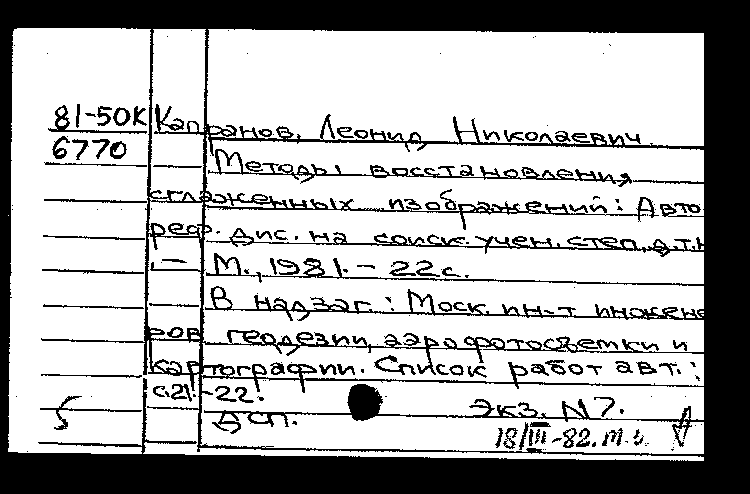 81-50К Капранов, Леонид Николаевич
6770 Методы восстановления
сглаженных изображений: Авто
реф. дис. на соиск. учен. степ. д.т.н
.– М., 1981. – 22 с.
В надзаг.: Моск. ин-т инжене
ров геодезии, аэрофотосъемки и
картографии. Список работ авт.:
с. 21-22.
ДСП. Экз. N 7.
18/III-82.